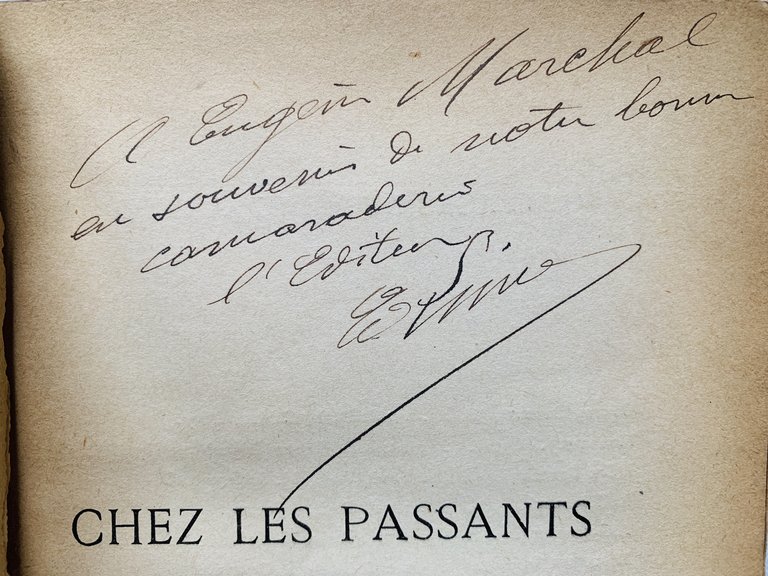 A Eugène Marchal
en souvenir de notre bonne
camaraderie
l'Editeur
CHEZ LES PASSANTS